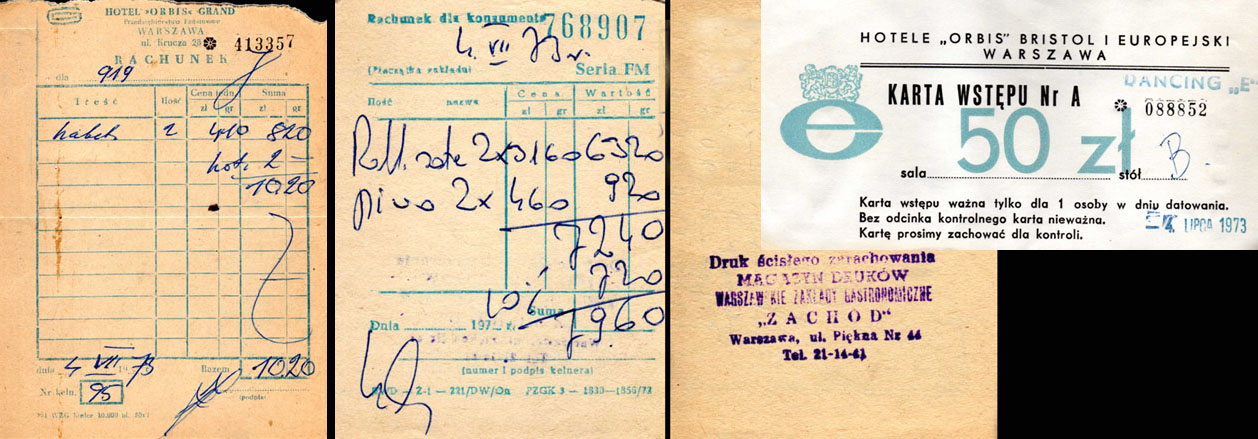 HOTEL »ORBIS« GRAND
Przedsiębiorstwo Państwowe
WARSZAWA
ul. Krucza 28 413357
RACHUNEK
dla 919
Treść Ilość Cena jedn. Suma
zł gr zł gr
2 410 820
2 —
10.20
dnia 4 VII 1973 Razem 1020
Nr keln. 95 (podpis)
Rachunek dla konsumenta 768907
4 VII 73 r.
(Pieczątka zakładu) Seria FM
Ilość nazwa Cena Wartość
zł gr zł gr
2x3160 6320
piwo 2x 460 920
7240
10% 720
Suma 7960
Dnia 197 r.
(numer i podpis kelnera)
Z-1 — 221/DW/On PZGK 3 —
HOTELE „ORBIS” BRISTOL I EUROPEJSKI
WARSZAWA
DANCING „E”
KARTA WSTĘPU Nr A 088852
50 zł
sala stół B.
Karta wstępu ważna tylko dla 1 osoby w dniu datowania.
Bez odcinka kontrolnego karta nieważna.
Kartę prosimy zachować dla kontroli.
4. LIPCA 1973
Druk ścisłego zarachowania
MAGAZYN DRUKÓW
WARSZAWSKIE ZAKŁADY GASTRONOMICZNE
„ZACHÓD”
Warszawa, ul. Piękna Nr 44
Tel. 21-14-41